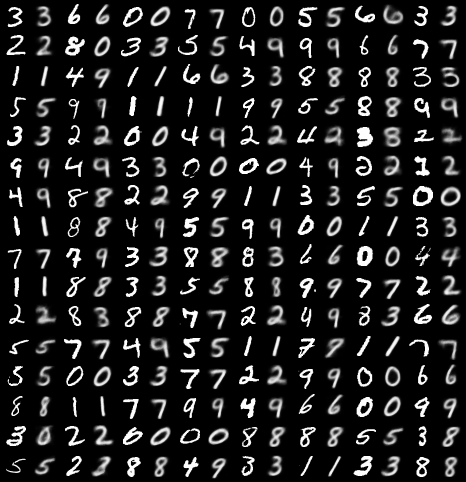 3 3 6 6 0 0 7 7 0 0 5 5 6 6 3 3
2 2 8 0 3 3 5 5 4 9 9 9 6 6 7 7
1 1 4 9 1 1 6 6 3 3 8 8 8 8 3 3
5 5 9 9 1 1 1 1 9 9 5 5 8 8 9 9
3 3 2 2 0 0 4 9 2 2 4 9 3 8 2 2
9 9 4 9 3 3 0 0 0 0 4 9 2 2 1 2
4 9 8 8 2 2 9 9 1 1 3 3 5 5 0 0
1 1 8 8 4 9 5 5 9 9 0 0 1 1 3 3
7 7 7 9 3 3 8 8 8 3 6 6 0 0 4 4
1 1 8 8 3 3 5 5 8 8 9 9 7 7 2 2
2 2 8 3 8 8 7 7 2 2 4 9 8 3 6 6
5 5 7 7 4 9 5 5 1 1 7 9 1 1 7 7
5 5 0 0 3 3 7 7 2 2 9 9 0 0 6 6
8 8 1 1 7 7 9 9 4 9 6 6 0 0 9 9
3 0 2 2 6 0 0 0 8 8 8 8 5 5 3 8
5 5 2 3 8 8 4 9 3 3 1 1 3 3 8 8